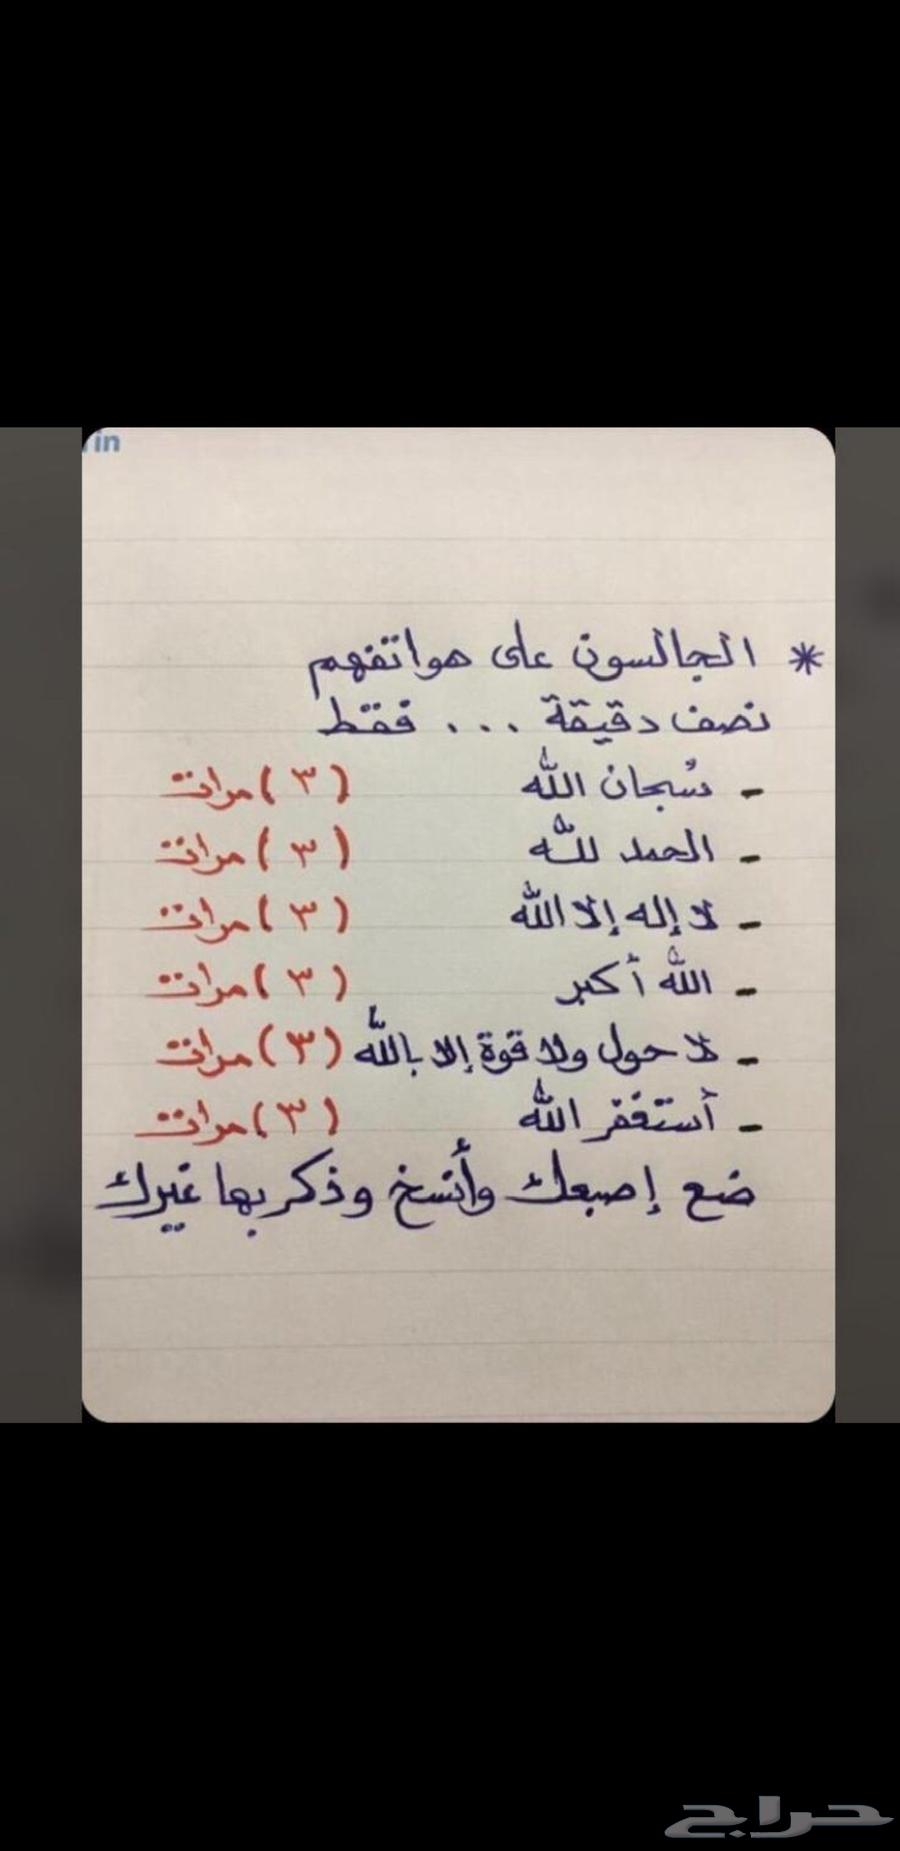 in
* الجالسون على هواتفهم
نصف دقيقة ... فقط
- سُبحان الله (٣) مرات
- الحمد لله (٣) مرات
- لا إله إلا الله (٣) مرات
- الله أكبر (٣) مرات
- لا حول ولا قوة إلا بالله (٣) مرات
- أستغفر الله (٣) مرات
ضع إصبعك وأنسخ وذكر بها غيرك
حراج